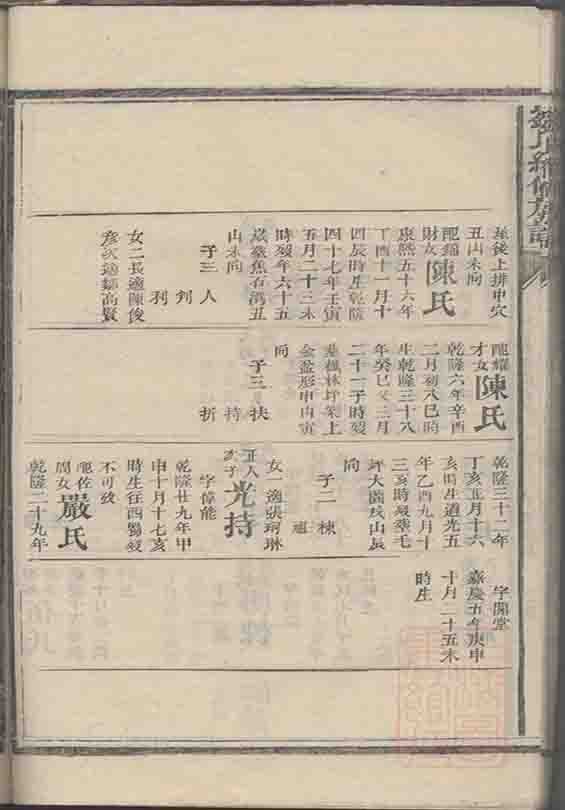 葬後上排申穴
丑山未向
配錦
財女
陳氏
康熙五十六年
丁酉十一月十
四辰時生乾隆
四十七年壬寅
五月二十三未
時歿年六十五
歲塟焦石灣丑
山未向
子三
人
刘
利
女二長適陳俊
彥次適鄒高賢
配耀
才女
陳氏
乾隆六年辛酉
二月初八巳時
生乾隆三十八
年癸巳又三月
二十一子時歿
塟楓林坪窠上
金盆形申山寅
向
子三
扶
持
折
乾隆三十二年
丁亥五月十六
亥時生道光五
年乙酉九月十
三亥時歿塟毛
坪大園歧山辰
向
子二
棟
女一適張珂琳
正人
次子
光持
字偉能
乾隆廿九年甲
申十月十七亥
時生往西蜀歿
不可攷
配佐
廣女
嚴氏
乾隆二十九年
字開堂
嘉慶五年庚申
十月二十五未
時生